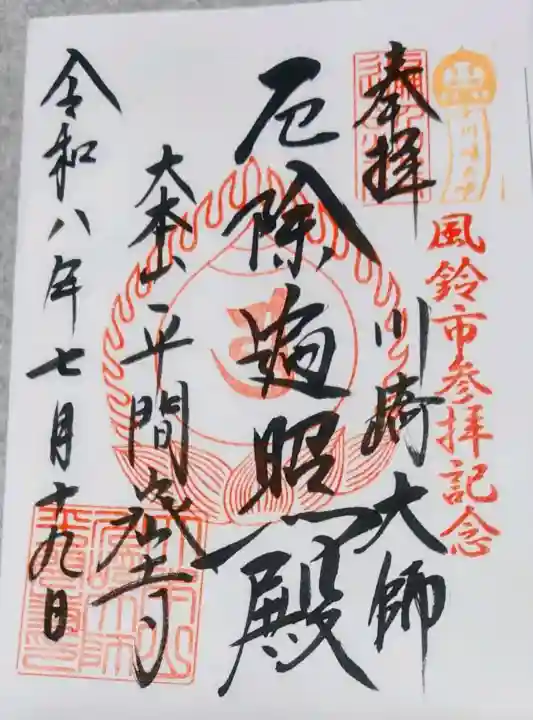 奉拝
風鈴市参拝記念
川崎大師
厄除遍照殿
大本山平間寺
令和八年七月十九日